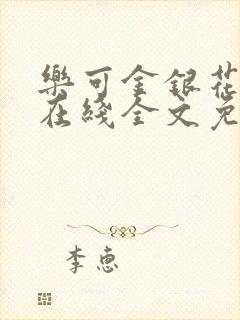 樂可金銀花
在綫全文免
李惠